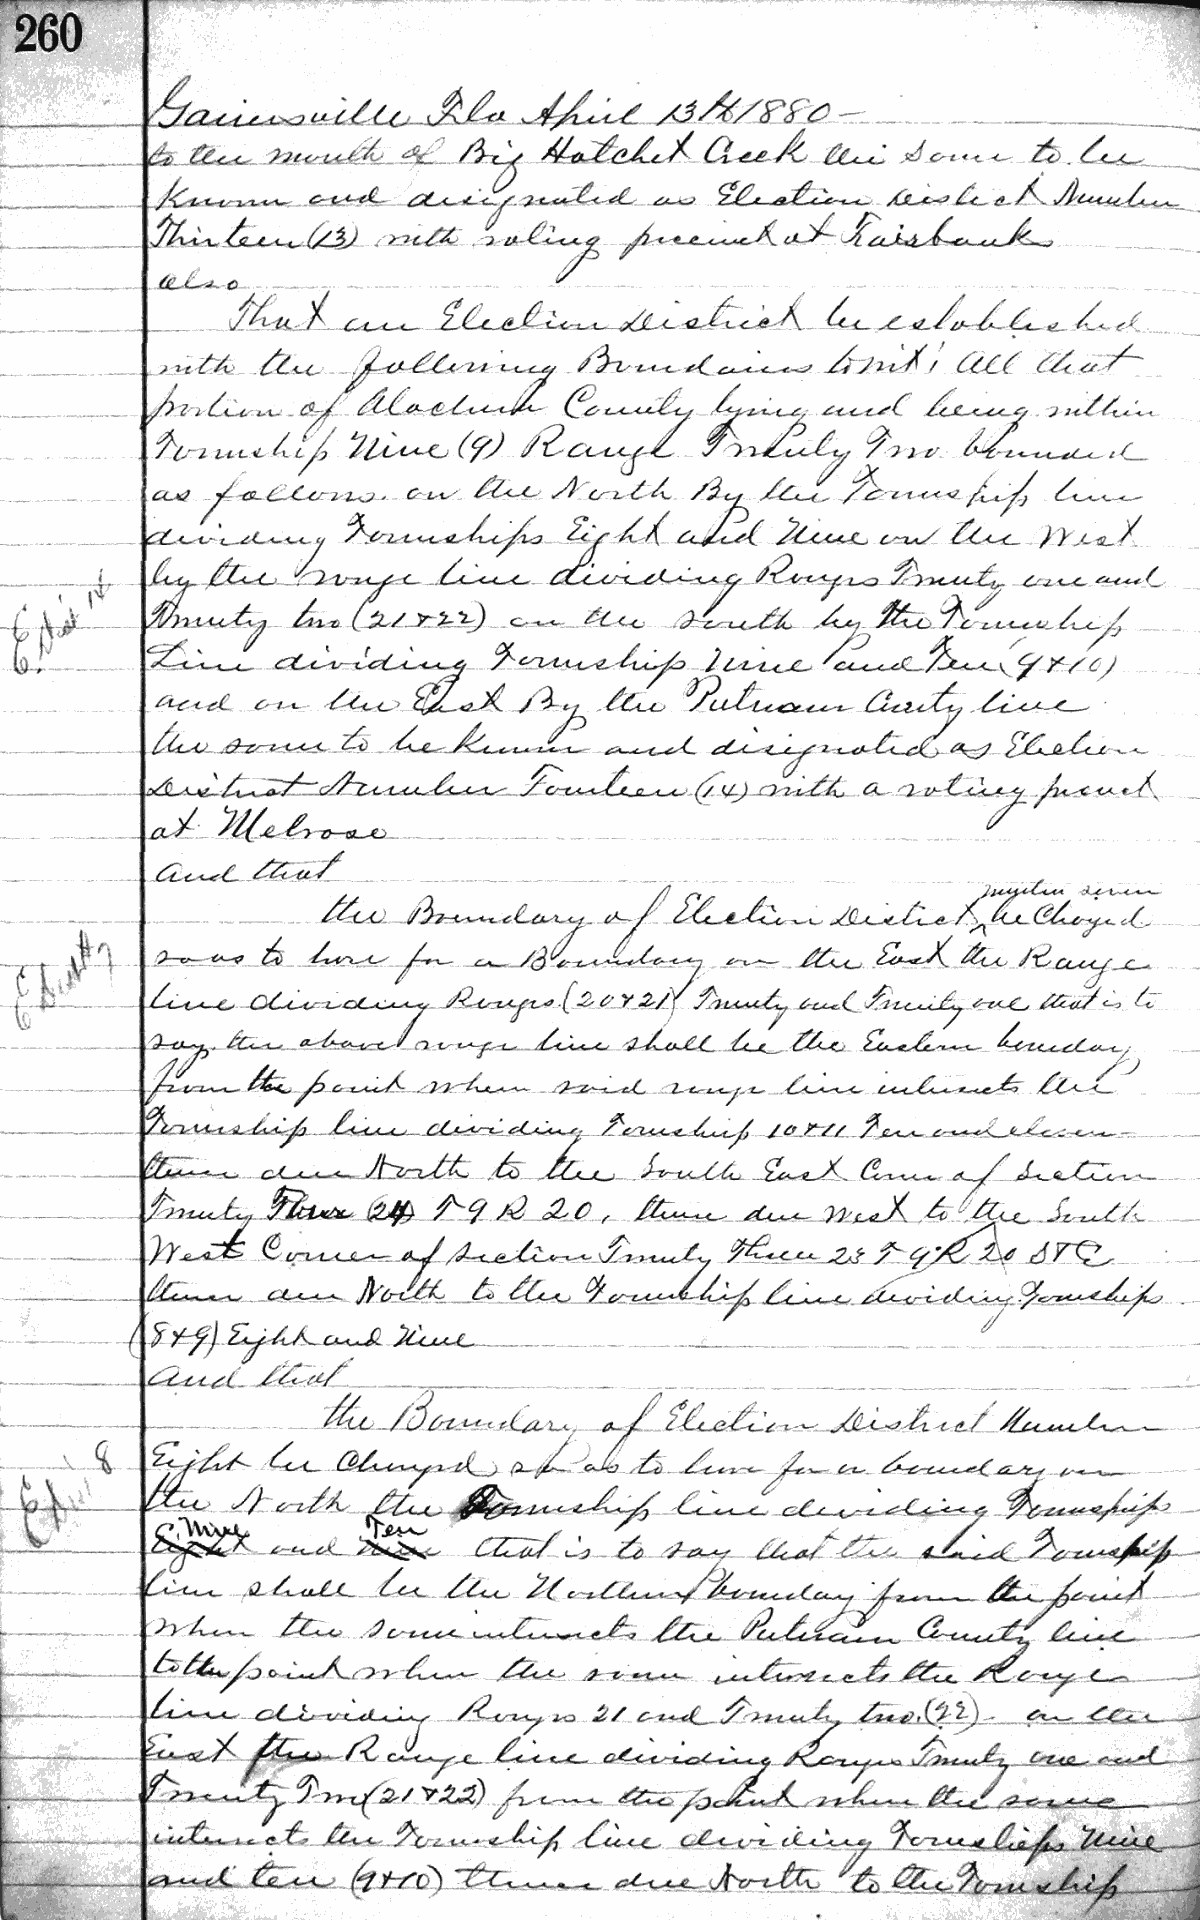 260
Gainesville Fla April 13th 1880 —
to the mouth of Big Hatchet Creek the same to be
known and designated as Election District Number
Thirteen (13) with voting precinct at Fairbanks
also
That an Election District be established
with the following Boundaries towit; All that
portion of Alachua County lying and being within
Township Nine (9) Range Twenty Two bounded
as follows. on the North By the Township line
dividing Townships Eight and Nine on the West
by the range line dividing Ranges Twenty one and
E. Dist 14
Twenty two (21 & 22) on the south by the Township
Line dividing Township Nine and Ten (9 & 10)
and on the East By the Putnam County line
the same to be known and designated as Election
District Number Fourteen (14) with a voting precinct
at Melrose
And that
number seven
the Boundary of Election District ^ be Changed
E. Dist # 7
so as to have for a Boundary on the East the Range
line dividing Ranges (20 & 21) Twenty and Twenty one that is to
say. the above range line shall be the Eastern bounday
from the point where said range line intersects the
Township line dividing Township 10 & 11 Ten and eleven
thence due North to the South East Corner of Section
Twenty Four (24) T 9 R 20, thence due West to the South
West Corner of Section Twenty Three 23 T 9 R 20 S & E
thence due North to the Township line dividing Townships
(8 & 9) Eight and Nine
And that
the Boundary of Election District Number
E Dist 8
Eight be Changed so as to have for a boundary on
the North the Township line dividing Townships
Nine Ten
Eight and Nine that is to say that the said Township
line shall be the Northern bounday from the point
when the same intersects the Putnam County line
to the point when the same intersects the Range
line dividing Ranges 21 and Twenty two. (22) on the
East the Range line dividing Ranges Twenty one and
Twenty Two (21 & 22) from the point when the same
intersects the Township line dividing Townships Nine
and ten (9 & 10) thence due North to the Township